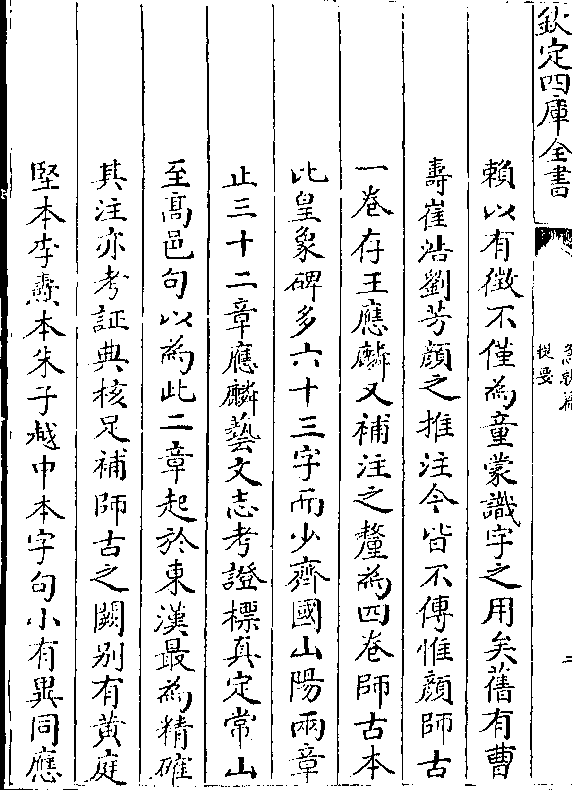 欽定四庫全書
急就篇
提要
二
賴以有徴不僅為童蒙識字之用矣舊有曹
壽崔浩劉芳顔之推注今皆不傳惟顔師古
一卷存王應麟又補注之釐為四卷師古本
比皇象碑多六十三字而少齊國山陽兩章
止三十二章應麟藝文志考證標真定常山
至髙邑句以為此二章起於東漢最為精確
其注亦考証典核足補師古之闕别有黄庭
堅本李燾本朱子越中本字句小有異同應